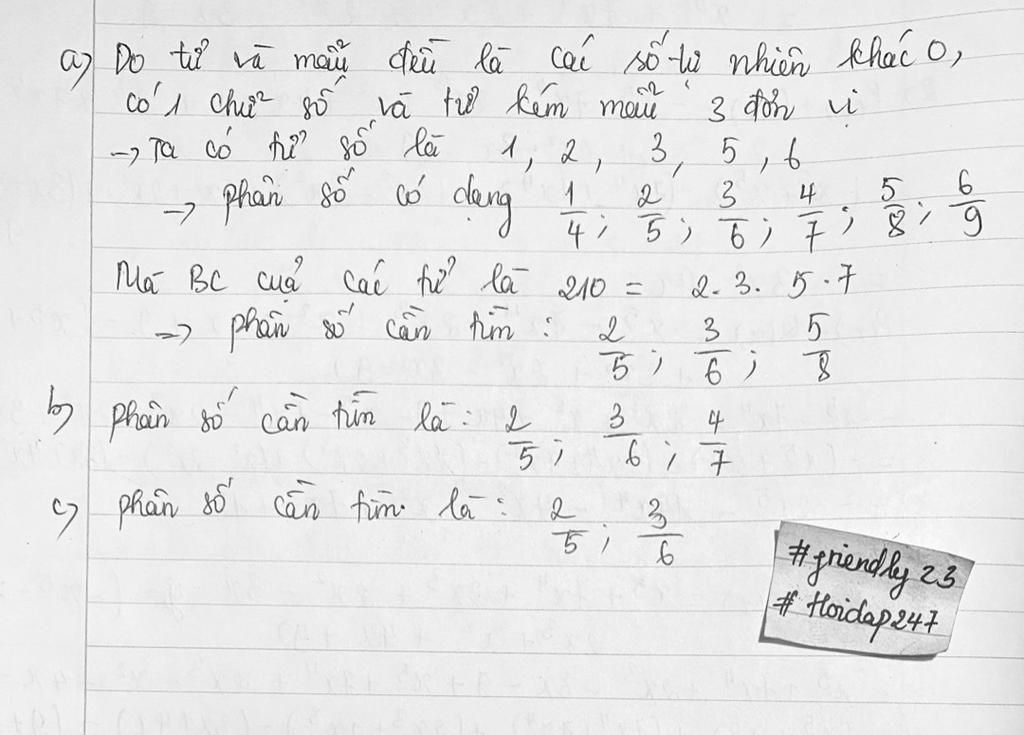 a) Do tử và mẫu đều là các số tự nhiên khác 0,
có 1 chữ số và tử kém mẫu 3 đơn vị
→ Ta có tử số là 1, 2, 3, 5, 6
→ phân số có dạng 1/4; 2/5; 3/6; 4/7; 5/8; 6/9
Mà BC của các tử là 210 = 2.3.5.7
=> phân số cần tìm: 2/5; 3/6; 5/8
b) phân số cần tìm là: 2/5; 3/6; 4/7
c) phân số cần tìm là: 2/5; 3/6
#friendly 23
# Hoidap247